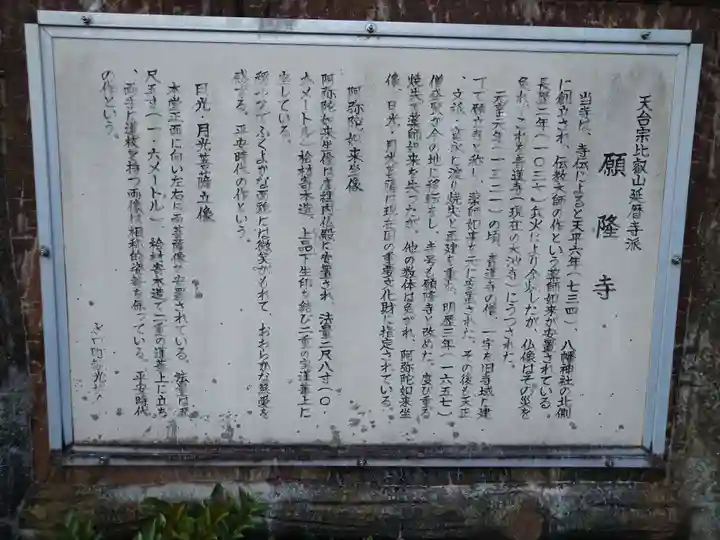 天台宗比叡山延暦寺派
願隆寺
当寺は、寺伝によると天平六年(七三四)、八幡神社の北側
に創立され、伝教大師の作という薬師如来が安置されている。
長暦二年(一〇三七)兵火により今火したが、仏像はその災を
免れ、これを青蓮寺(現在の大池寺)にうつされた。
元亨元年(一三二一)の頃、青蓮寺の僧、一宇を旧寺域に建
てて願立寺と称し、薬師如来を元に安置された。その後も天正
、文禄、寛永と渡り焼失と再建を重ね、明暦三年(一六五七)
僧
が今の地に移転をし、寺号も願隆寺と改めた。度び重なる
焼失で薬師如来を失ったが、他の数体は免がれ、阿弥陀如来坐
像、日光・月光菩薩は現在国の重要文化財に指定されている。
阿弥陀如来坐像
阿弥陀如来坐像は
内仏殿に安置され、法量二尺八寸(〇
メートル)桧材寄木造、上品下生印を結び二重の蓮華上に
坐している。
ふくよかな面貌には微笑がもれて、おおらかな慈愛を
感ずる。平安時代の作という。
日光・月光菩薩立像
本堂正面に向い左右に両菩薩像が安置されている。法量は五
尺五寸(一・六メートル)、桧材寄木造で二重の蓮華上に立ち
、両手に蓮枝を持つ両像は相称的姿勢を保っている。平安時代
の作という。